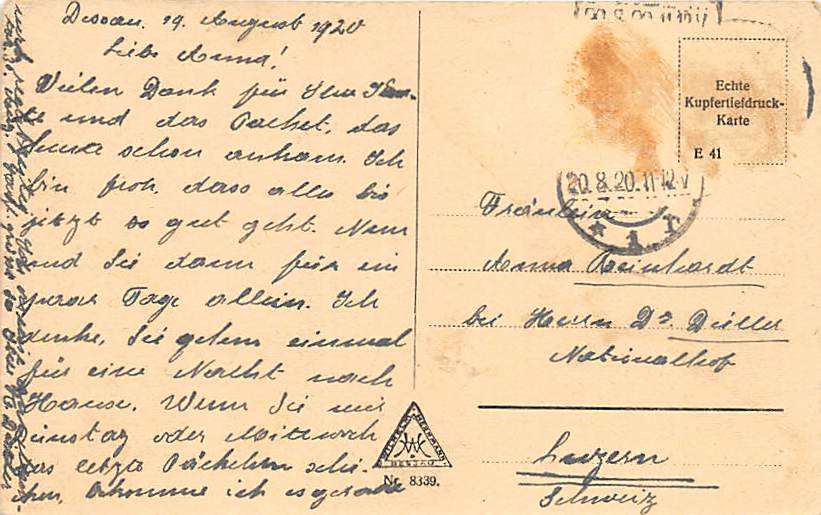 Dessau. 19. August 1920
Liebe Anna!
Vielen Dank für Ihre Kar-
te und das Packet, das
heute schon ankam. Ich
bin froh, dass alles bis
jetzt so gut geht. Nun
sind Sie dann für ein
paar Tage allein. Ich
denke, Sie gehen einmal
für eine Nacht nach
Hause. Wenn Sie mir
Dienstag oder Mittwoch
das letzte Päckchen schi-
cken, bekomme ich es gerade
noch recht
Echte
Kupfertiefdruck-
Karte
E 41
20.8.20.11-12V
Fräulein
Anna Reinhardt
bei Herrn Dr Düller
Nationalhof
Luzern
Schweiz
WILHELM HERRMANN
DESSAU
Nr. 8339.